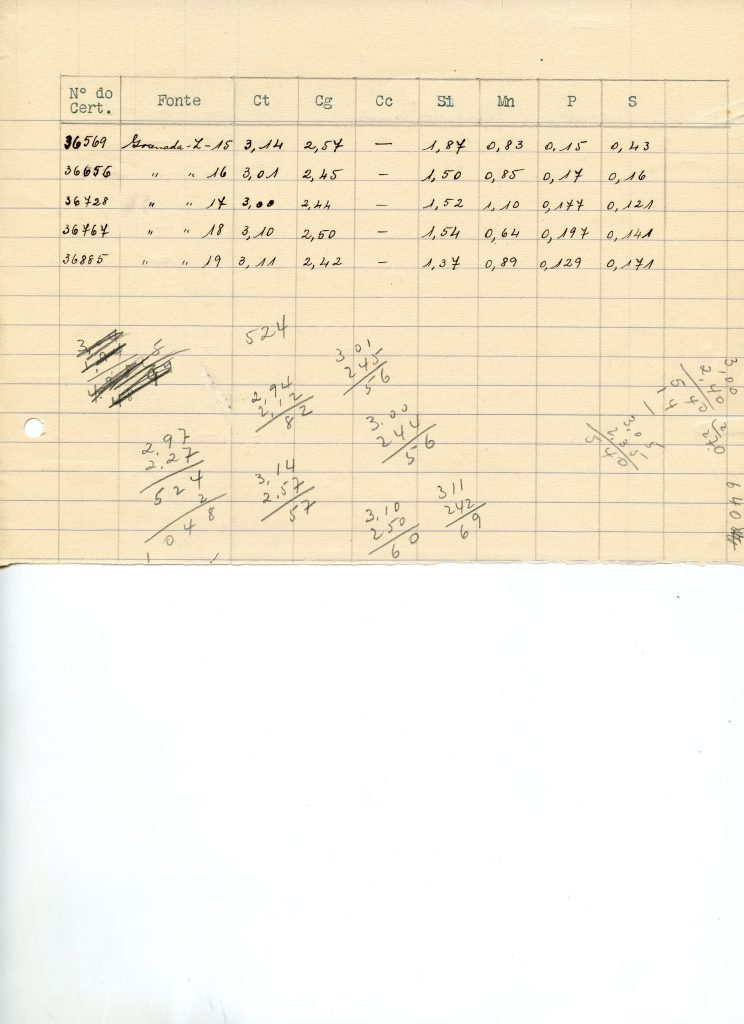 Nº do Cert. Fonte Ct Cg Cc Si Mn P S
36569 Granada-Z-15 3,14 2,57 — 1,87 0,83 0,15 0,43
36656 " " 16 3,01 2,45 — 1,50 0,85 0,17 0,16
36728 " " 17 3,00 2,44 — 1,52 1,10 0,177 0,121
36767 " " 18 3,10 2,50 — 1,54 0,64 0,197 0,141
36885 " " 19 3,11 2,42 — 1,37 0,89 0,129 0,171
524
3,01
245
56
2,94
2,12
82
3.00
244
56
2.97
2.27
524
2
048
3,14
2.57
57
3,10
250
60
311
242
69
3,00
2.40
640